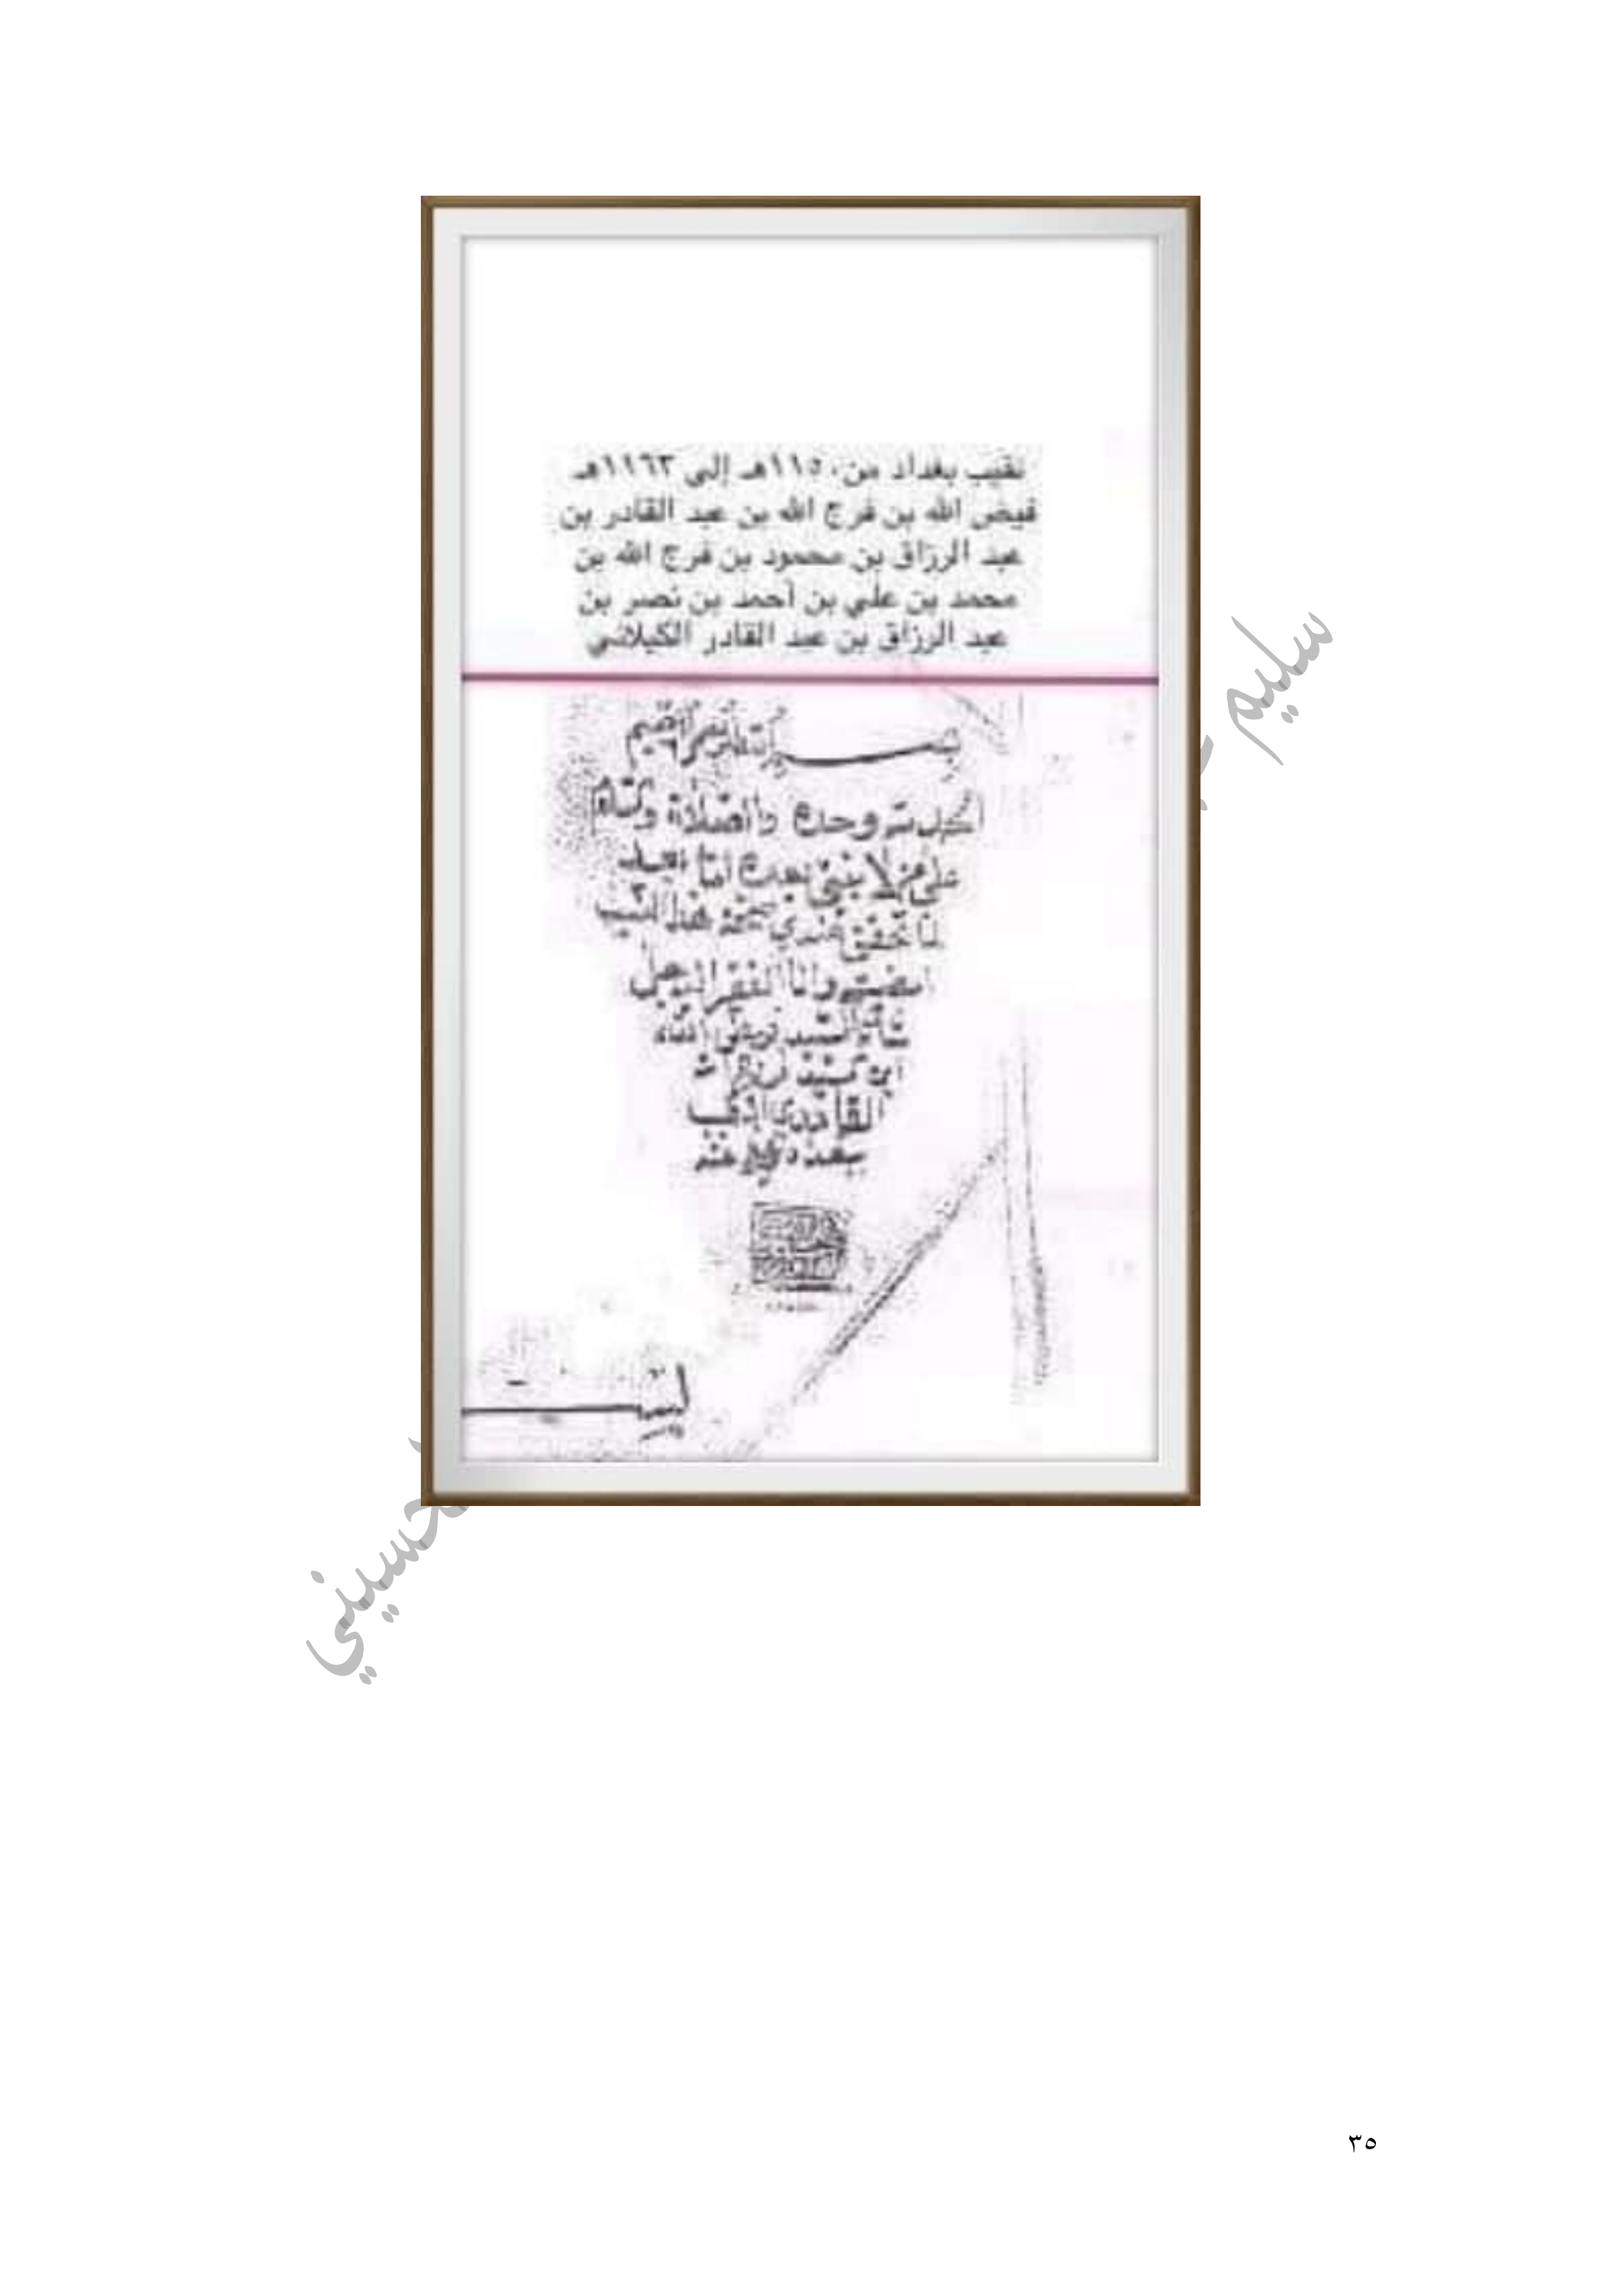 نقيب بغداد من ١١٥٠هـ إلى ١١٦٣هـ
فيض الله بن فرج الله بن عبد القادر بن
عبد الرزاق بن محمود بن فرج الله بن
محمد بن علي بن أحمد بن نصر بن
عبد الرزاق بن عبد القادر الكيلاني
بسم الله الرحمن الرحيم
الحمد لله وحده والصلاة والسلام
على من لا نبي بعده اما بعد
لما تحقق عندي صحة هذا النسب
امضيته وانا الفقير
السيد
ابن السيد
القادري
بسم
سليم
الحسيني
٣٥